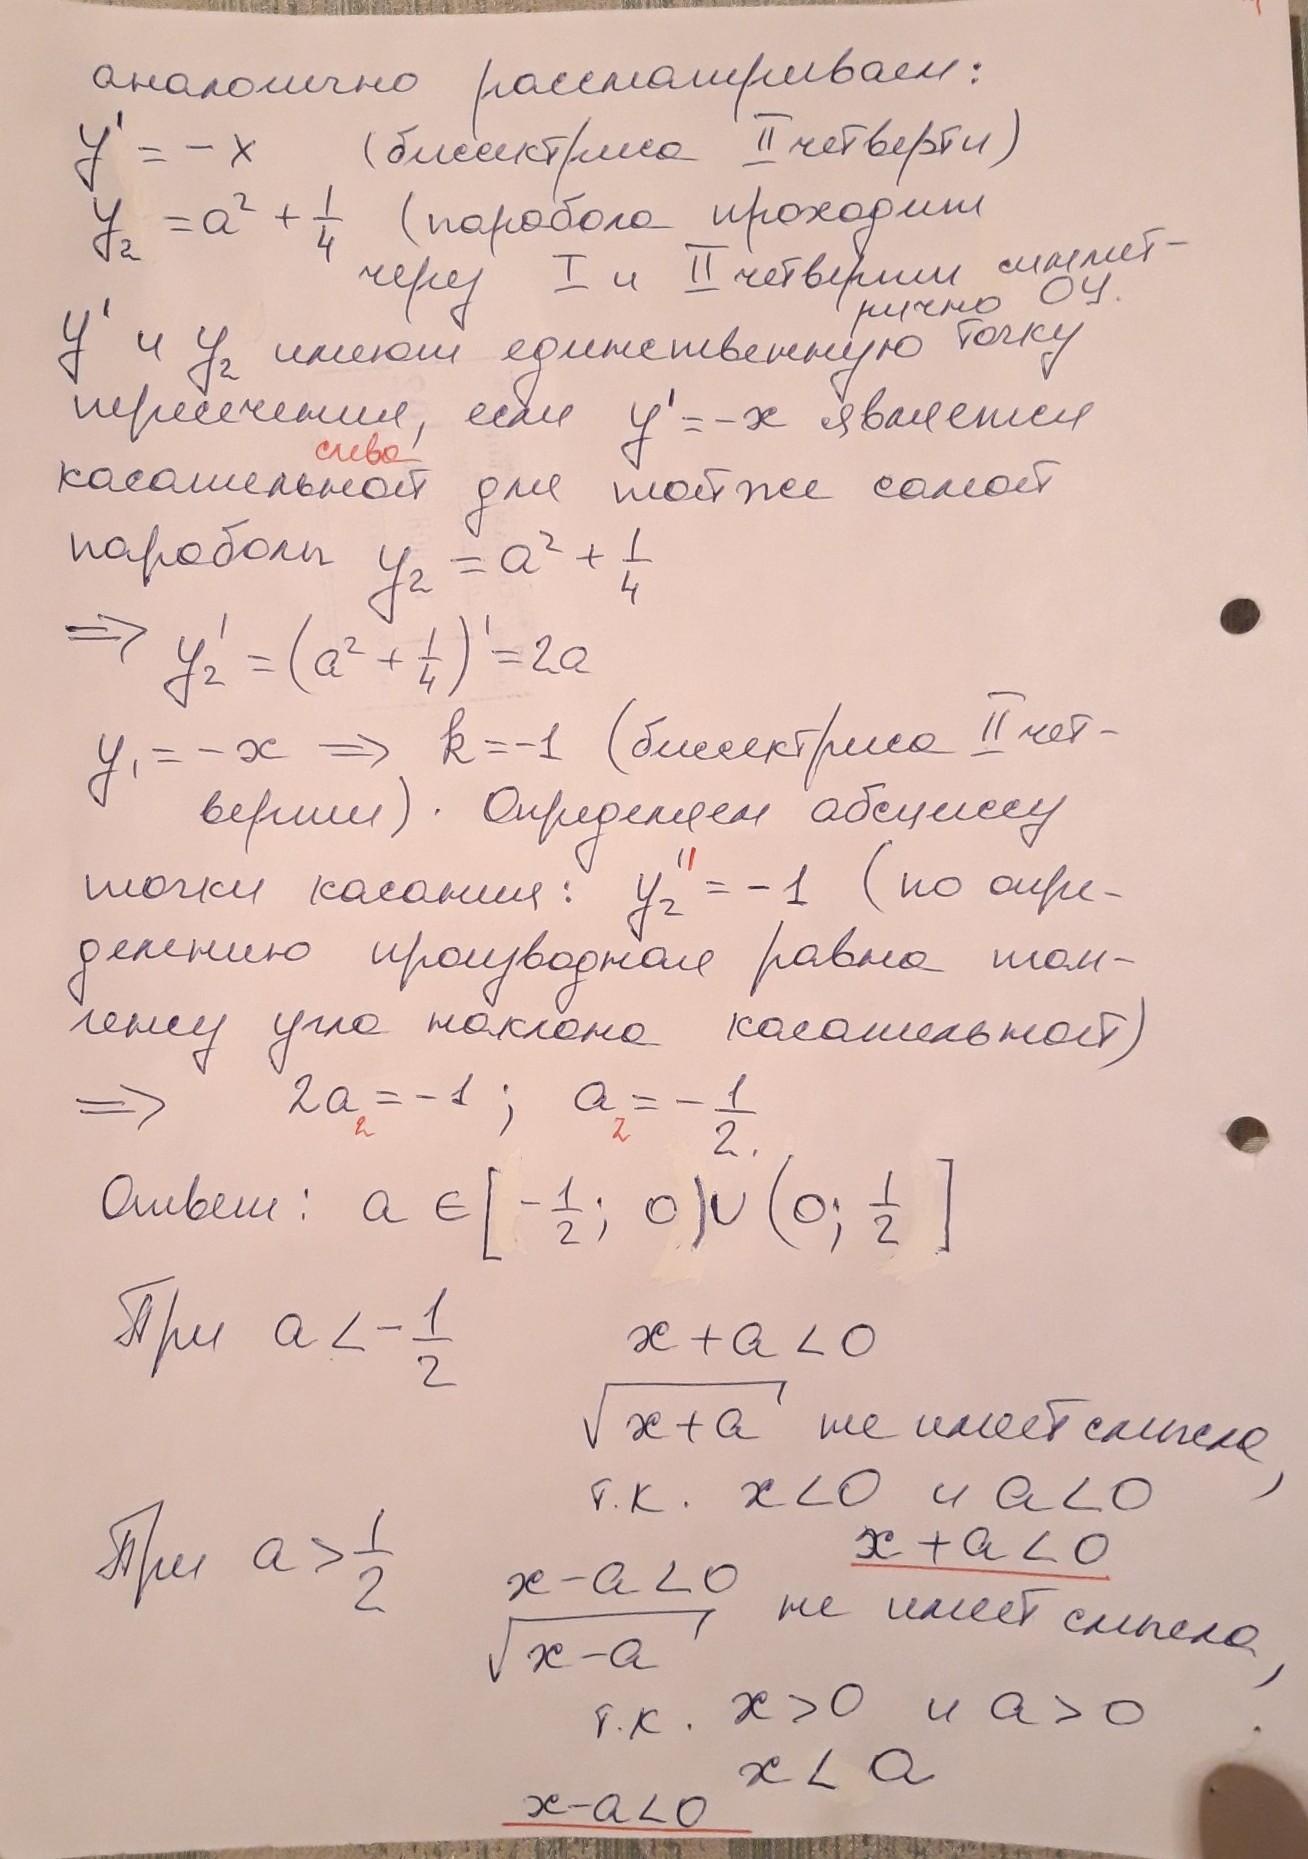 аналогично рассматриваем:
y' = -x (биссектриса II четверти)
y₂ = a² + 1/4 (парабола проходит
через I и II четверти симмет-
рично OY.
y' и y₂ имеют единственную точку
пересечения, если y' = -x является
слева
касательной для той же самой
параболы y₂ = a² + 1/4
⇒ y₂' = (a² + 1/4)' = 2a
y₁ = -x ⇒ k = -1 (биссектриса II чет-
верти). Определяем абсциссу
точки касания: y₂'' = -1 (по опре-
делению производная равна тан-
генсу угла наклона касательной)
⇒ 2a₂ = -1; a₂ = -1/2.
Ответ: a ∈ [-1/2; 0) ∪ (0; 1/2]
При a < -1/2 x + a < 0
√(x+a) не имеет смысла,
т.к. x < 0 и a < 0
x + a < 0
При a > 1/2 x - a < 0
√(x-a) не имеет смысла,
т.к. x > 0 и a > 0
x < a
x - a < 0